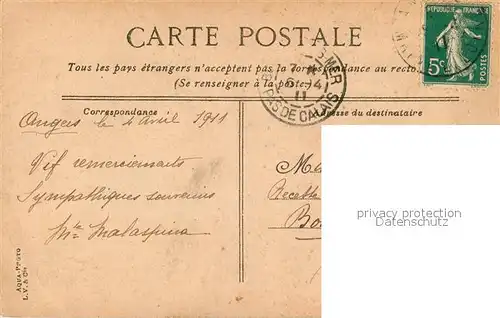 CARTE POSTALE
Tous les pays étrangers n'acceptent pas la correspondance au recto
(Se renseigner à la poste)
Correspondance
Adresse du destinataire
RÉPUBLIQUE FRANÇAISE
5c
MER
PAS DE CALAIS
11
Angers le 4 avril 1911
Vif remerciements
Sympathiques souvenirs
Malaspina
Recette
AQUA-PHOTO
L.V. & Cie
privacy protection
Datenschutz